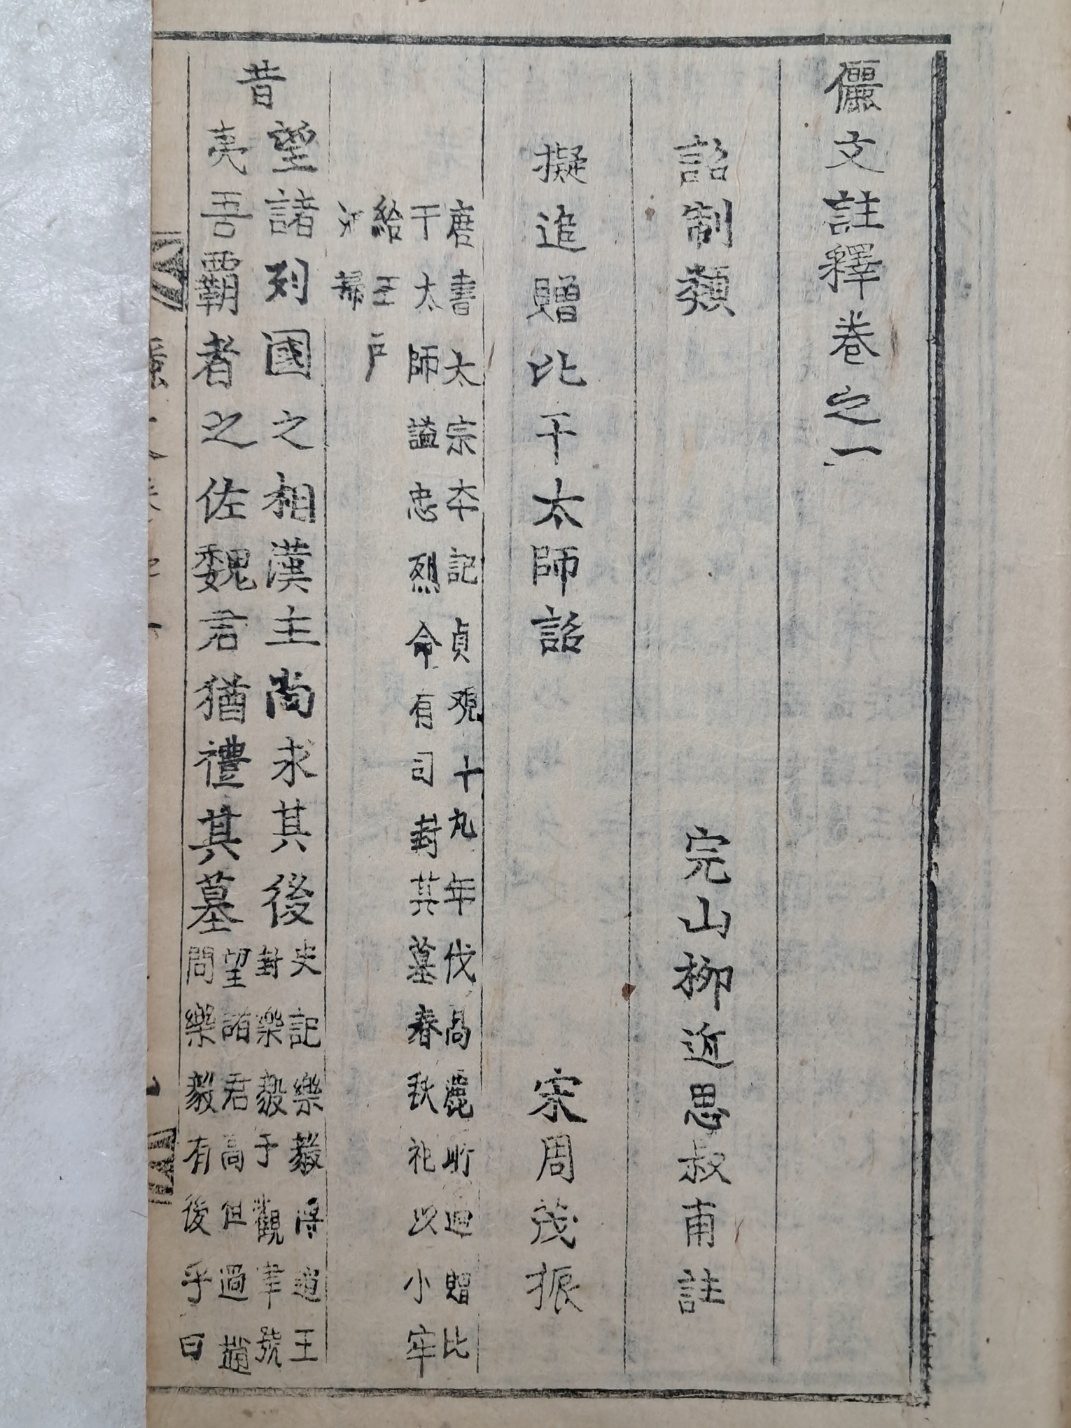 儷文註釋卷之一
詔制類 完山柳近思叔甫註
擬追贈比干太師詔 宋周茂振
唐書太宗本記貞观十九年伐高麗所過贈比
干太師謚忠烈命有司封其墓春秋祀以小牢
給五戶
洒掃
昔
望諸列國之相漢主尚求其後
史記樂毅傳趙王
封樂毅于觀津號
望諸君高但過趙
問樂毅有後乎曰
夷吾覇者之佐魏君猶禮其墓